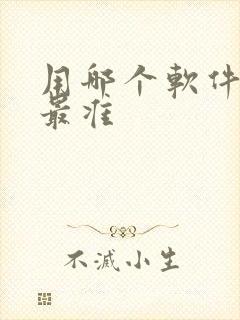 用哪个軟件
最准
不滅小生